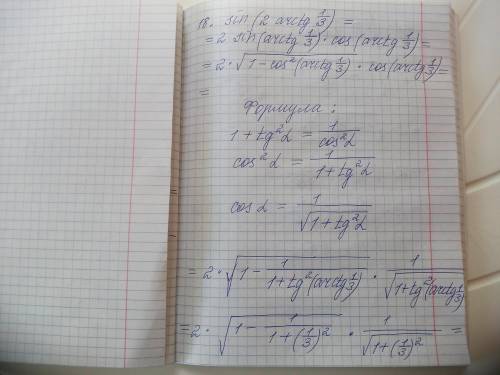 18. sin(2 arctg 1/3) =
= 2 sin(arctg 1/3) · cos(arctg 1/3) =
= 2 · √(1 - cos²(arctg 1/3)) · cos(arctg 1/3) =
=
Формула :
1 + tg²α = 1/cos²α
cos²α = 1/(1 + tg²α)
cos α = 1/√(1 + tg²α)
= 2 · √(1 - 1/(1 + tg²(arctg 1/3))) · 1/√(1 + tg²(arctg 1/3))
= 2 · √(1 - 1/(1 + (1/3)²)) · 1/√(1 + (1/3)²) =